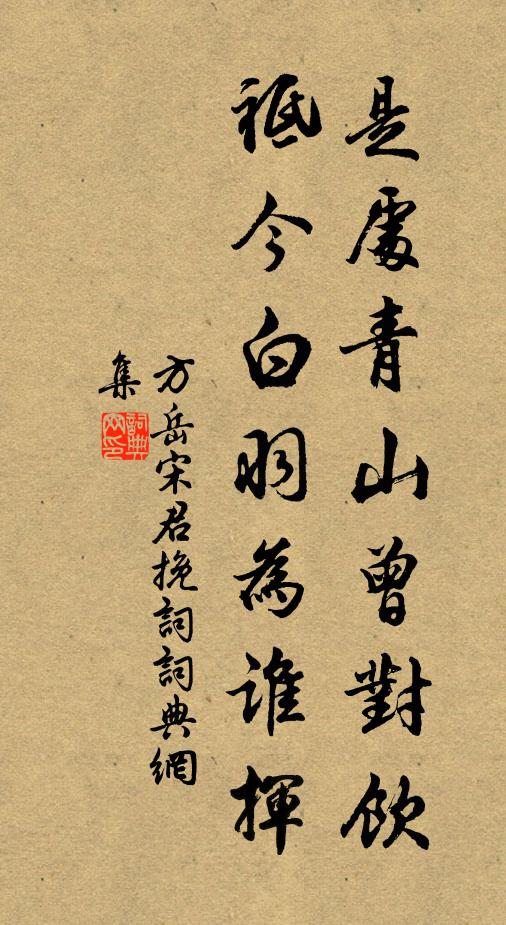 是處青山曾對飲
祗今白羽為誰揮
方岳宋君挽詞詞典網
集
詞典網印